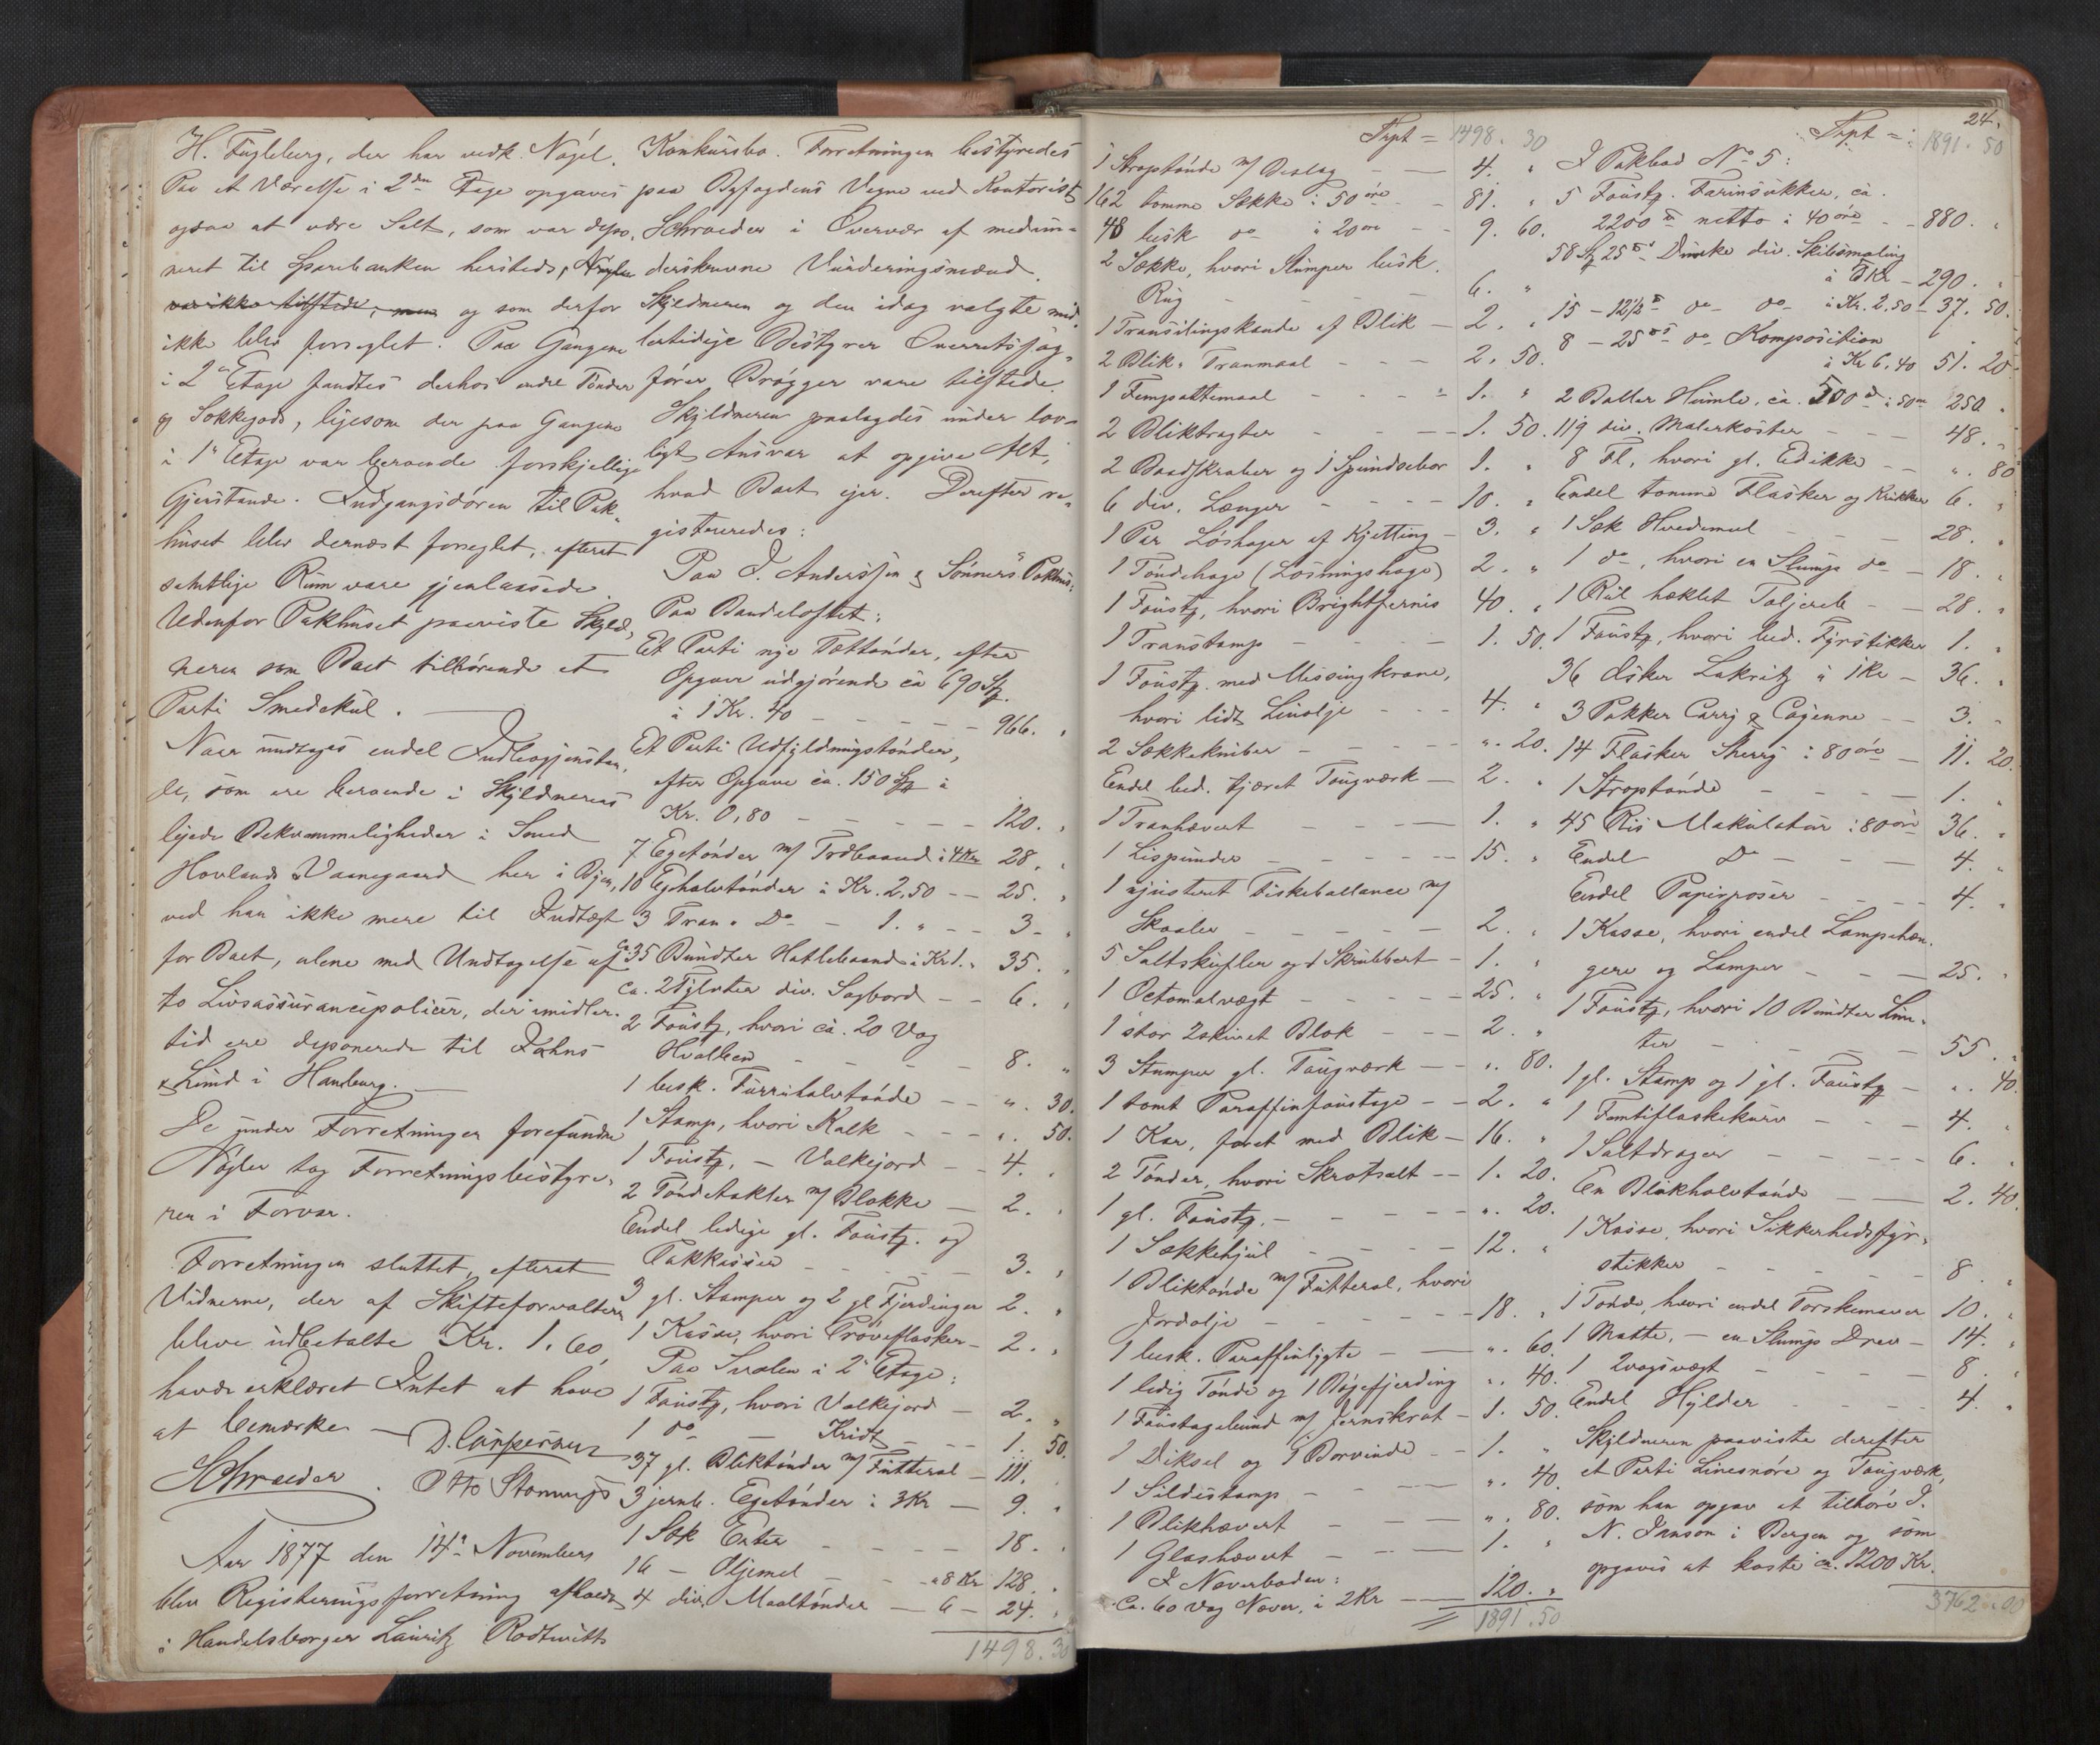 H. Fugleberg, der har vedk. Nøgel.
Paa et Værelse i 2den Etage opgaves
ogsaa at være Salt, som var depo-
neret til Sparebanken hersteds, Nøglen
var ikke tilstede, men og som derfor
ikke blev forseglet. Paa Gangene
i 2den Etage fandtes derhos endre Tønder
og Sækkegods, ligesom der paa Gangene
i 1ste Etage var beroende forskjellige
Gjenstande. Indgangsdøren til Pak-
huset blev dernæst forseglet, efterat
samtlige Rum vare gjenlaasede.
Udenfor Pakhuset paaviste Skyld-
neren som Boet tilhørende et
Parti Smedekul.
Naar undtages endel Indbogjenstan-
de, som ere beroende i Skyldnerens
lejede Bekvemmeligheder i Smed
Hovlands Vaanegaard her i Byen,
ved han ikke mere til Indtægt
for Boet, alene med Undtagelse af
to Livsassurancepolicer, der imidler-
tid ere deponerede til Jahns
& Lund i Hamburg.
De under Forretningen forefundne
Nøgler tog Forretningsbestyre-
ren i Forvar.
Forretningen sluttet, efterat
Vidnerne, der af Skifteforvalteren
bleve udbetalte Kr. 1.60,
havde erklæret Intet at have
at bemærke
D. Caspersen
Schroeder. Otto
Aar 1877 den 14de November
blev Registreringsforretning afholdt
i Handelsborger Lauritz Rodtwitts
Konkursbo. Forretningen bestyredes
paa Byfogdens Vegne ved Kontorist
Schroeder i Overvær af medun-
derskrevne Vurderingsmænd.
Skyldneren og den idag valgte mid-
lertidige Bestyrer Overretssag-
fører Brøgger vare tilstede.
Skyldneren paalagdes under lov-
ligt Ansvar at opgive Alt,
hvad Boet ejer. Derefter re-
gistreredes:
Paa J. Anderssen & Sønners Pakhus:
Paa Baandeloftet:
Et Parti nye Tættønder, efter
Opgave udgjørende ca 690 St.
à 1 Kr. 40 - 966. "
Et Parti Udfyldningstønder,
efter Opgave ca. 150 St. à
Kr. 0,80 - 120. "
7 Egetønder m/ Træbaand à 4 Kr 28. "
10 Egehalvtønder à Kr. 2,50 - 25. "
3 Tran- Do - 1. " - 3. "
Ca 35 Bundter Hatlebaand à Kr 1. " 35. "
Ca. 2 Tylvter div. Sagbord - 6. "
2 Foustg, hvori ca. 20 Vog
Hvalben - 8. "
1 besk. Furrihalvtønde - ". 30.
1 Stamp, hvori Kalk - ". 50.
1 Foustg. - Valkejord - 4. "
2 Tøndetakler m/ Blokke - 2. "
Endel ledige gl. Foustg. og
Pakkasser - 3. "
3 gl. Stamper og 2 gl. Fjerdinger 2. "
1 Kasse, hvori Prøveflasker - 2. "
Paa Svalen i 2den Etage:
1 Foustg, hvori Valkejord - 2. "
1 do - Kridt - 1. 50.
37 gl. Bliktønder m/ Futteral - 111. "
3 jernb. Egetønder à 3 Kr - 9. "
1 Sæk Erter - 18. "
16 - Oljemel - à 8 Kr 128. "
4 div. Maaltønder - 6 - 24. "
1498. 30
Trpt = 1498. 30
1 Stroptønde m/ Beslag - 4. "
162 tomme Sække à 50 øre - 81. "
48 besk do à 20 øre - 9. 60.
2 Sække, hvori Stumper besk.
Rug - 6. "
1 Transilingskande af Blik - 2. "
2 Blik- Tranmaal - 2. 50.
1 Fempottemaal - 1. "
2 Bliktragter - 1. 50.
2 Baadskraber og 1 Spundsebor 1. "
6 div. Længer - 10. "
1 Par Løshager af Kjetting - 3. "
1 Tøndehage (Losningshage) 2. "
1 Foustg, hvori Brightfernis 40. "
1 Transtamp - 1. 50.
1 Foustg. med Missingkrane,
hvori lidt Linolje - 4. "
2 Sækkekniber - ". 20.
Endel bed. tjæret Tougværk - 2. "
1 Tranhævert - 1. "
1 Lispunder - 15. "
1 ajusteret Diskeballance m/
Skaaler - 2. "
5 Saltskufler og 1 Skrubbert - 1. "
1 Octomalvægt - 25. "
1 stor 2skivet Blok - 2. "
3 Stumper gl. Tougværk - ". 80.
1 tomt Paraffinfoustage - 2. "
1 Kar, foret med Blik - 16. "
2 Tønder, hvori Skrotsalt - 1. 20.
1 gl. Foustg. - ". 20.
1 Sækkehjul - 12. "
1 Bliktønde m/ Futteral, hvori
Jordolje - 18. "
1 besk. Paraffinlygte - ". 60.
1 ledig Tønde og 1 Bøgefjerding ". 40.
1 Foustagebund m/ Jernskrot - 1. 50.
1 Diksel og 1 Borvinde - 1. "
1 Sildestamp - ". 40.
1 Blikhævert - ". 80.
1 Glashævert - 1. "
I Næverboden:
Ca. 60 Vog Næver, à 2 Kr - 120. "
1891. 50
24.
Trpt = 1891. 50
I Pakbod No 5:
5 Foustg. Farinsukker, ca.
2200 ℔ netto à 40 øre - 880. "
58 St 25 ℔s Dunke div. Skibsmaling
à 5 Kr - 290. "
15 - 12 1/2 ℔ do do à Kr. 2,50 - 37. 50.
8 - 25 ℔s do Komposition
à Kr 6,40 51. 20.
2 Baller Humle, ca. 500 ℔ à 50 øre 250. "
119 div. Malerkoster - 48. "
8 Fl, hvori gl. Edikke - ". 80
Endel tomme Flasker og Krukker 6. "
1 Sæk Hvedemel - 28. "
1 do, hvori en Slump do - 18. "
1 Rul hæklet Taljereb - 28. "
1 Foustg, hvori bed. Fyrstikker 1. "
36 Æsker Lakritz à 1 Kr - 36. "
3 Pakker Carry & Cayenne - 3. "
14 Flasker Sherry à 80 øre - 11. 20.
1 Stroptønde - 1. "
45 Ris Makulatur à 80 øre 36. "
Endel Do - 4. "
Endel Papirposer - 4. "
1 Kasse, hvori endel Lampehæn-
gere og Lamper - 25. "
1 Foustg, hvori 10 Bundter Lun-
ter - 55. "
1 gl. Stamp og 1 gl. Foustg - ". 40.
1 Femtiflaskekurv - 4. "
1 Saltdrager - 6. "
En Blikhalvtønde - 2. 40.
1 Kasse, hvori Sikkerhedsfyr-
stikker - 8 "
1 Tønde, hvori endel Torskemaver 10. "
1 Matte, - en Slump Drev - 14. "
1 2vogsvægt - 8 "
Endel Hylder - 4. "
Skyldneren paaviste derefter
et Parti Linesnøre og Tougværk,
som han opgav at tilhøre J.
N. Janson i Bergen og som
opgaves at koste ca. 1200 Kr.
3762. 00